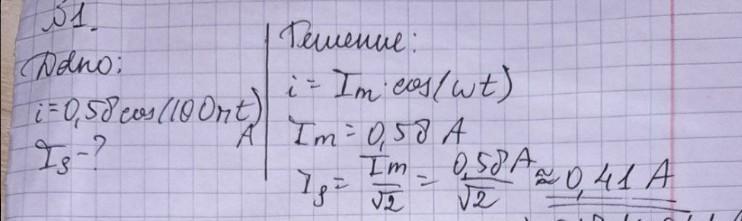 №1.
Дано:
i=0,58cos(100πt) A
Iд-?
Решение:
i=Im·cos(ωt)
Im=0,58 A
Iд=Im/√2=0,58A/√2≈0,41 A